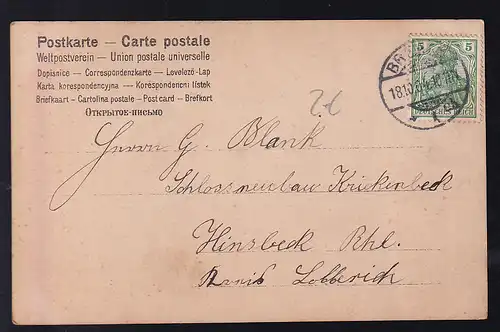 Postkarte — Carte postale
Weltpostverein — Union postale universelle
Dopisnice — Correspondenzkarte — Levelező-Lap
Karta korespondencyjna — Korespondenční lístek
Briefkaart — Cartolina postale — Post card — Brefkort
Открытое-письмо
5 5
2.-
Herrn G. Blank
Schlossneubau Krickenbeck
Hinsbeck Rhl.
Kreis Lobberich